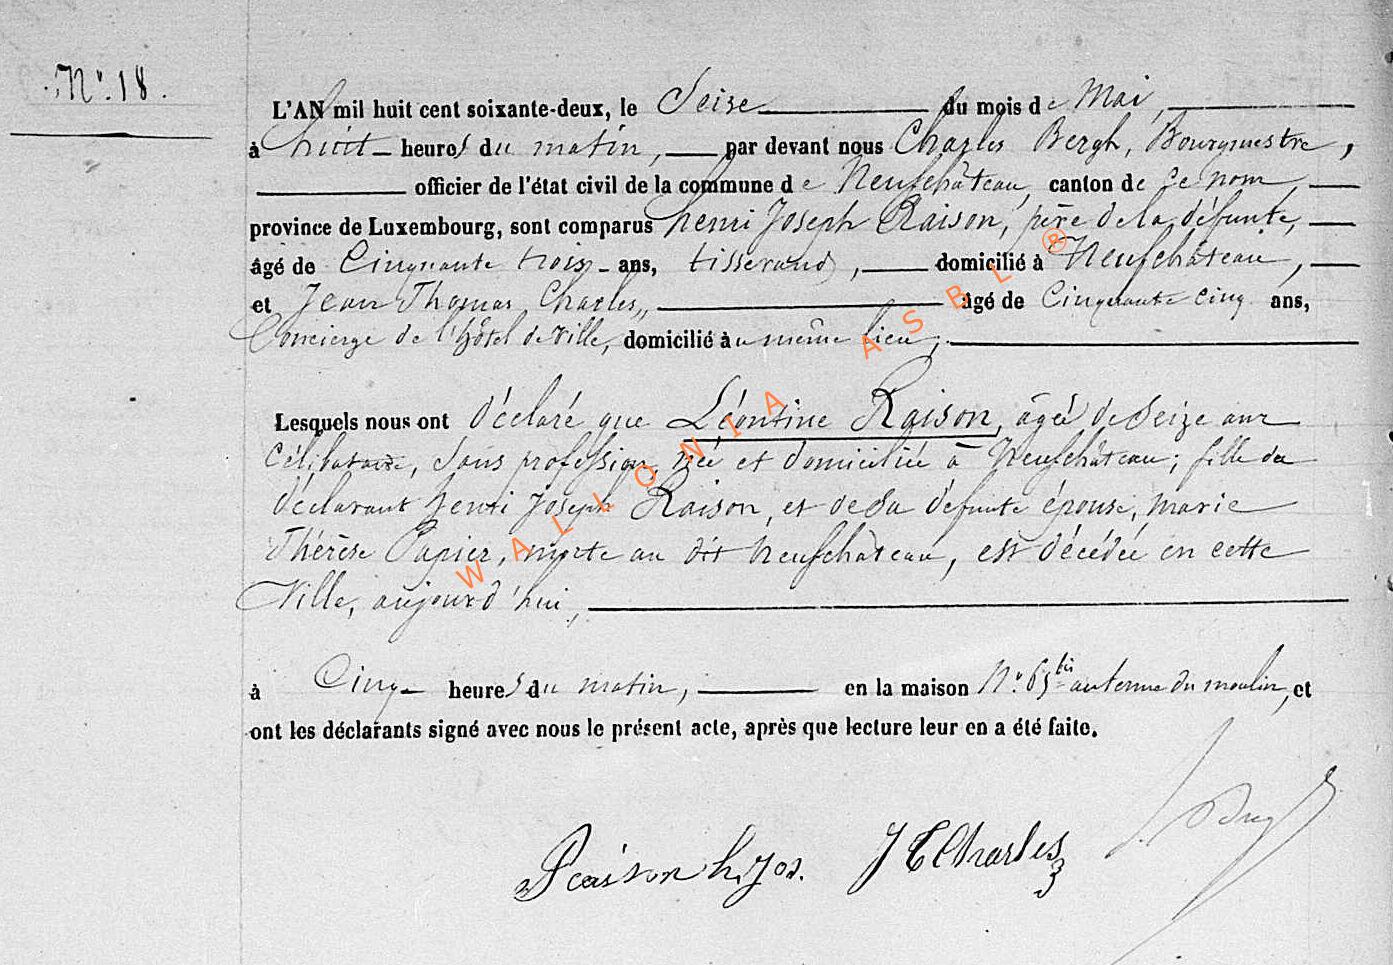 Nº. 18.
L'AN mil huit cent soixante-deux, le Seize du mois de Mai,
à huit heures du matin, par devant nous Charles Bergh, Bourgmestre,
officier de l'état civil de la commune de Neufchâteau, canton de ce nom,
province de Luxembourg, sont comparus henri Joseph Raison, père de la défunte,
âgé de Cinquante trois ans, tisserand, domicilié à Neufchâteau,
et Jean Thomas Charles, âgé de Cinquante cinq ans,
Concierge de l'hôtel de Ville, domicilié au même lieu,
Lesquels nous ont déclaré que Léontine Raison, âgée de Seize ans
Célibataire, Sans profession, née et domiciliée à Neufchâteau; fille du
déclarant henri Joseph Raison, et de Sa défunte épouse, marie
Thérèse Papier, morte au dit Neufchâteau, est décédée en cette
Ville, aujourd'hui,
à Cinq heures du matin, en la maison Nº. 65 bis au terme du moulin, et
ont les déclarants signé avec nous le présent acte, après que lecture leur en a été faite.
Raison h. jos. J T Charles
WALLONIA ASBL ®